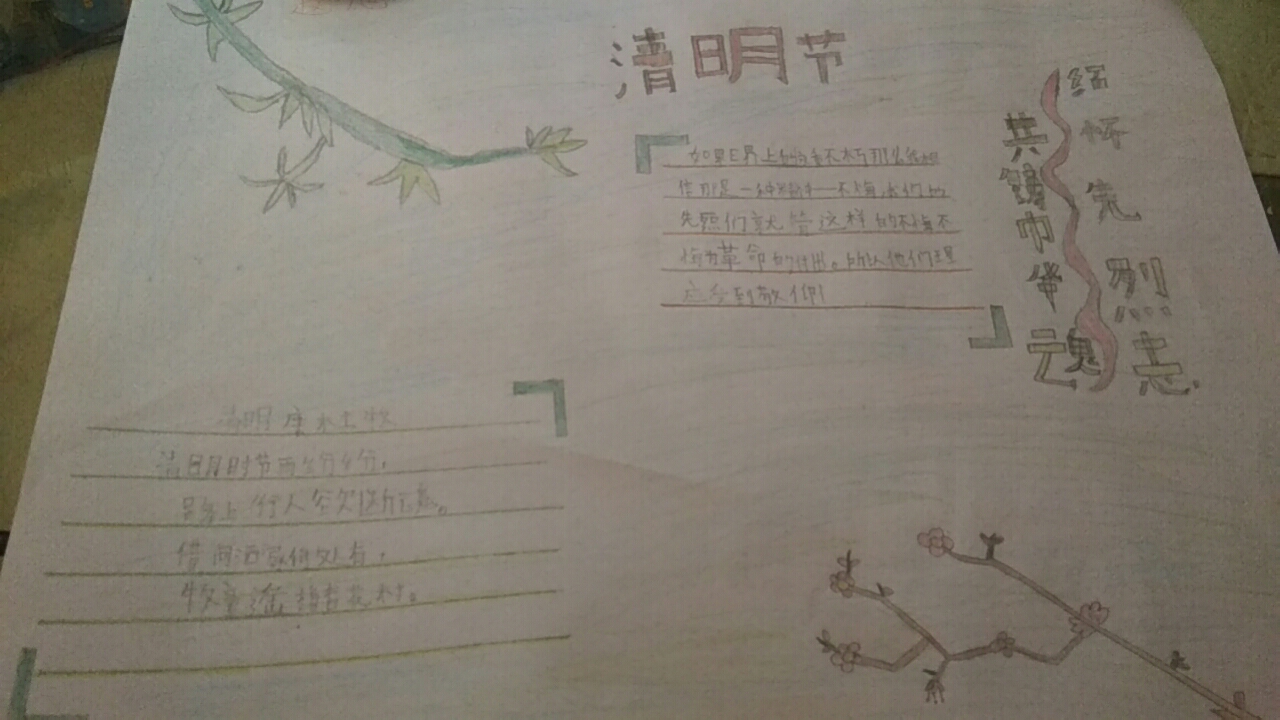 清明节
缅怀先烈志
共铸中华魂
如果世界上真的有不朽那么我相
信那是一种精神—不悔,我们的
先烈们就是凭这样的不悔不
悔为革命的付出。所以他们理
应受到敬仰
清明 唐 杜牧
清明时节雨纷纷,
路上行人欲断魂。
借问酒家何处有,
牧童遥指杏花村。